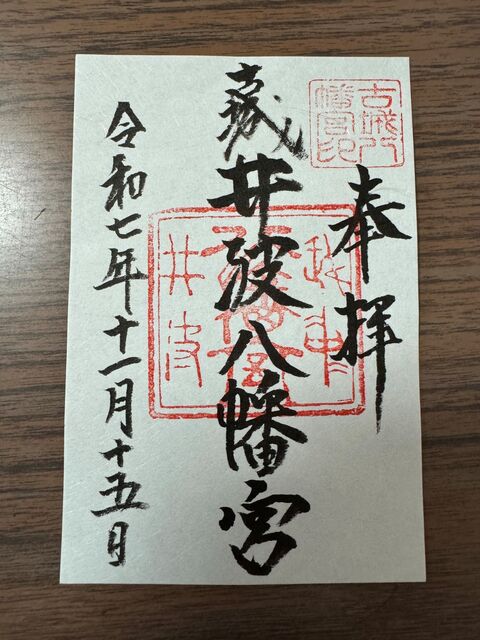 古城八
幡宮印
奉拝
古城
井波八幡宮
越中
八幡宮
井波
令和七年十一月十五日